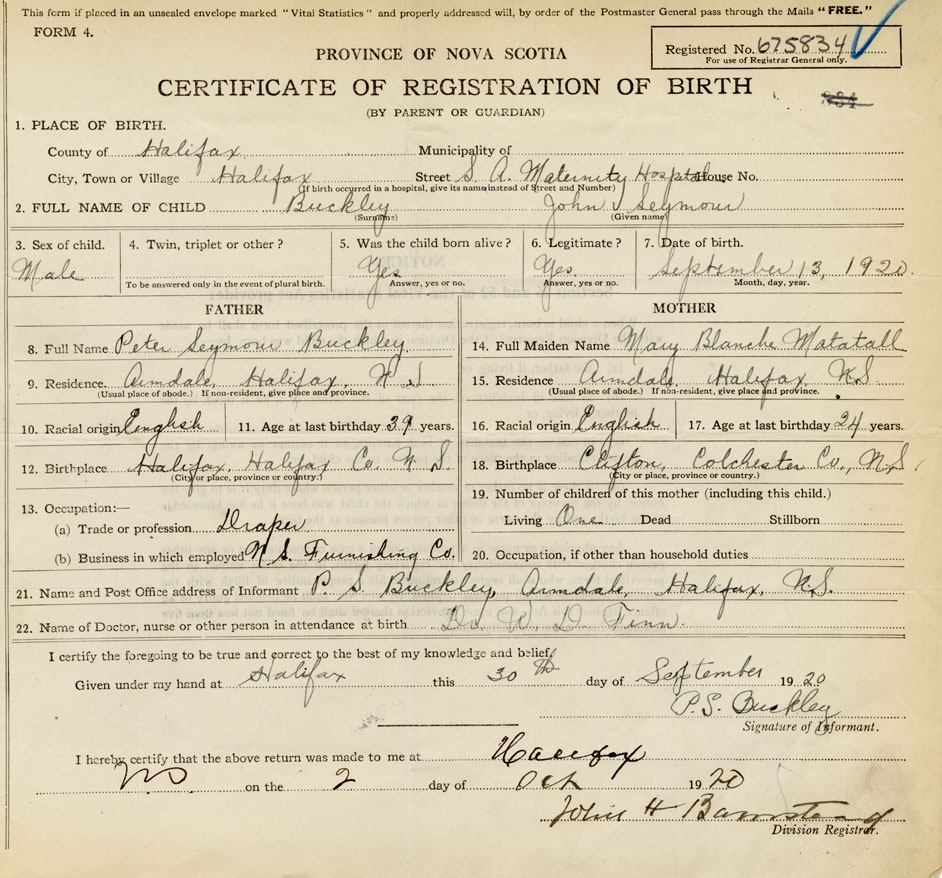 This form if placed in an unsealed envelope marked "Vital Statistics" and properly addressed will, by order of the Postmaster General pass through the Mails "FREE."
FORM 4.
PROVINCE OF NOVA SCOTIA
Registered No. 675834
For use of Registrar General only.
CERTIFICATE OF REGISTRATION OF BIRTH
(BY PARENT OR GUARDIAN)
1. PLACE OF BIRTH.
County of Halifax Municipality of
City, Town or Village Halifax Street S. A. Maternity Hospital House No.
(If birth occurred in a hospital, give its name instead of Street and Number)
2. FULL NAME OF CHILD Buckley John Seymour
(Surname) (Given name)
3. Sex of child. 4. Twin, triplet or other? 5. Was the child born alive? 6. Legitimate? 7. Date of birth.
Male Yes Yes. September 13, 1920.
To be answered only in the event of plural birth. Answer, yes or no. Answer, yes or no. Month, day, year.
FATHER MOTHER
8. Full Name Peter Seymour Buckley. 14. Full Maiden Name Mary Blanche Matatall
9. Residence Armdale, Halifax, N.S 15. Residence Armdale, Halifax, N.S.
(Usual place of abode.) If non-resident, give place and province. (Usual place of abode.) If non-resident, give place and province.
10. Racial origin English 11. Age at last birthday 39 years. 16. Racial origin English 17. Age at last birthday 24 years.
12. Birthplace Halifax, Halifax Co. N.S. 18. Birthplace Clifton, Colchester Co., N.S.
(City or place, province or country.) (City or place, province or country.)
13. Occupation:— 19. Number of children of this mother (including this child.)
(a) Trade or profession Draper Living One Dead Stillborn
(b) Business in which employed N.S. Furnishing Co. 20. Occupation, if other than household duties
21. Name and Post Office address of Informant P. S. Buckley, Armdale, Halifax, N.S.
22. Name of Doctor, nurse or other person in attendance at birth Dr. W. D. Finn.
I certify the foregoing to be true and correct to the best of my knowledge and belief,
Given under my hand at Halifax this 30th day of September 1920
P.S. Buckley
Signature of Informant.
I hereby certify that the above return was made to me at Halifax
NS on the 2 day of Oct 1920
John H Barnstead
Division Registrar.